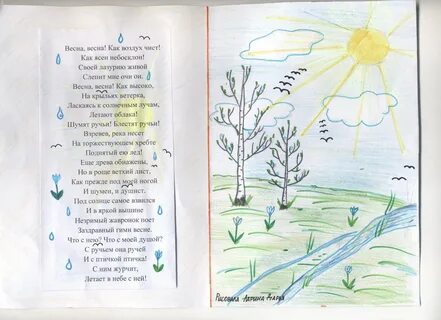 Весна, весна! Как воздух чист!
Как ясен небосклон!
Своей лазурию живой
Слепит мне очи он.
Весна, весна! Как высоко,
На крыльях ветерка,
Ласкаясь к солнечным лучам,
Летают облака!
Шумят ручьи! Блестят ручьи!
Взревев, река несет
На торжествующем хребте
Поднятый ею лед!
Еще древа обнажены,
Но в роще ветхий лист,
Как прежде под моей ногой
И шумен, и душист.
Под солнце самое взвился
И в яркой вышине
Незримый жавронок поет
Заздравный гимн весне.
Что с нею? Что с моей душой?
С ручьем она ручей
И с птичкой птичка!
С ним журчит,
Летает в небе с ней!
Рисовала